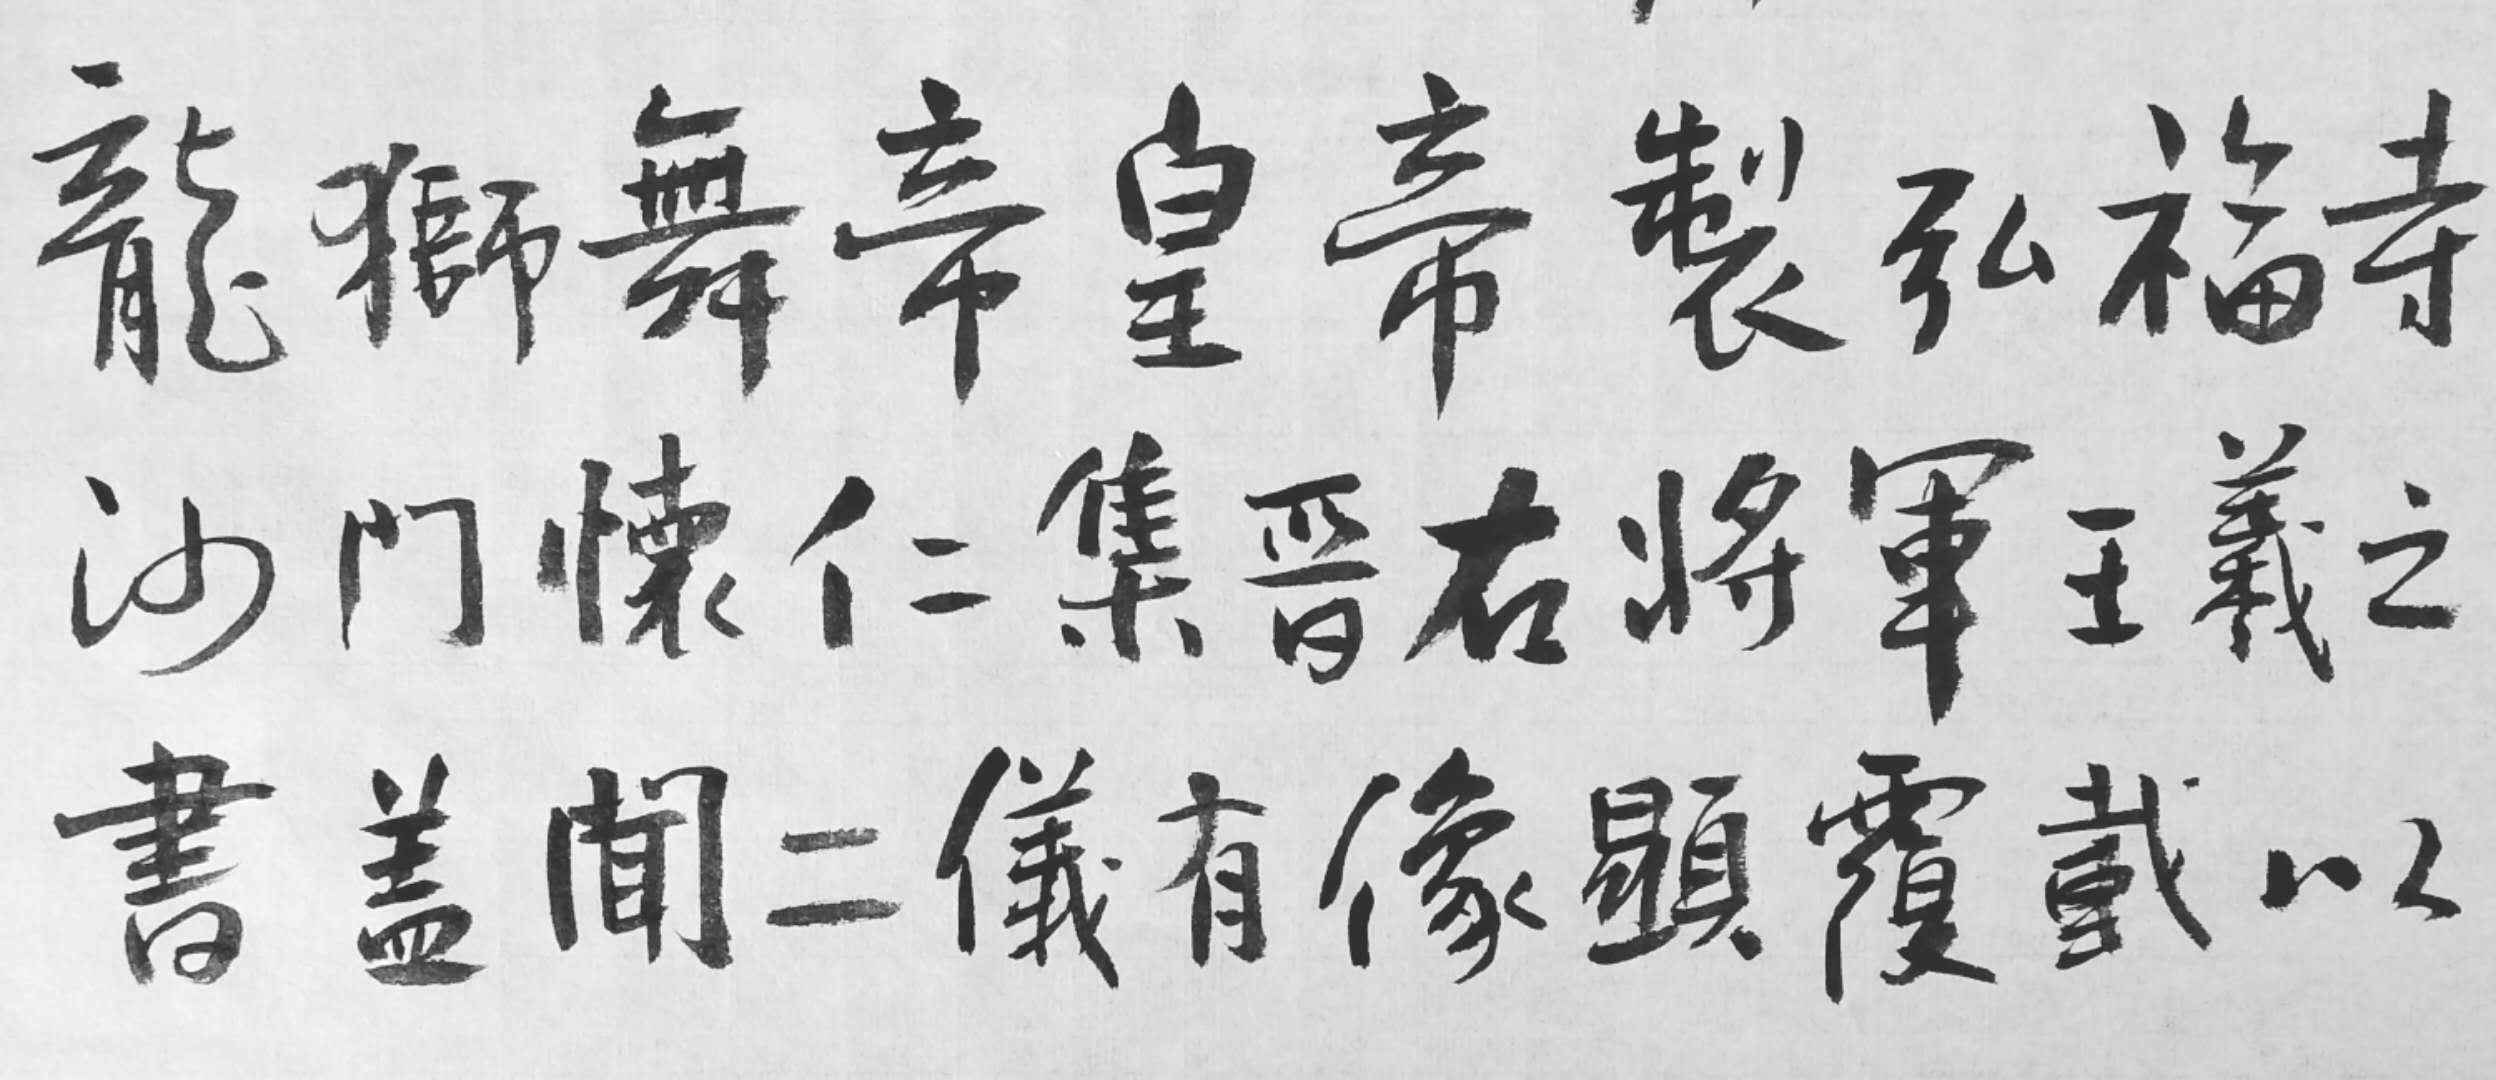 龍獅舞帝皇帝製弘福寺
沙門懷仁集晉右將軍王羲之
書盖聞二儀有像顯覆載以